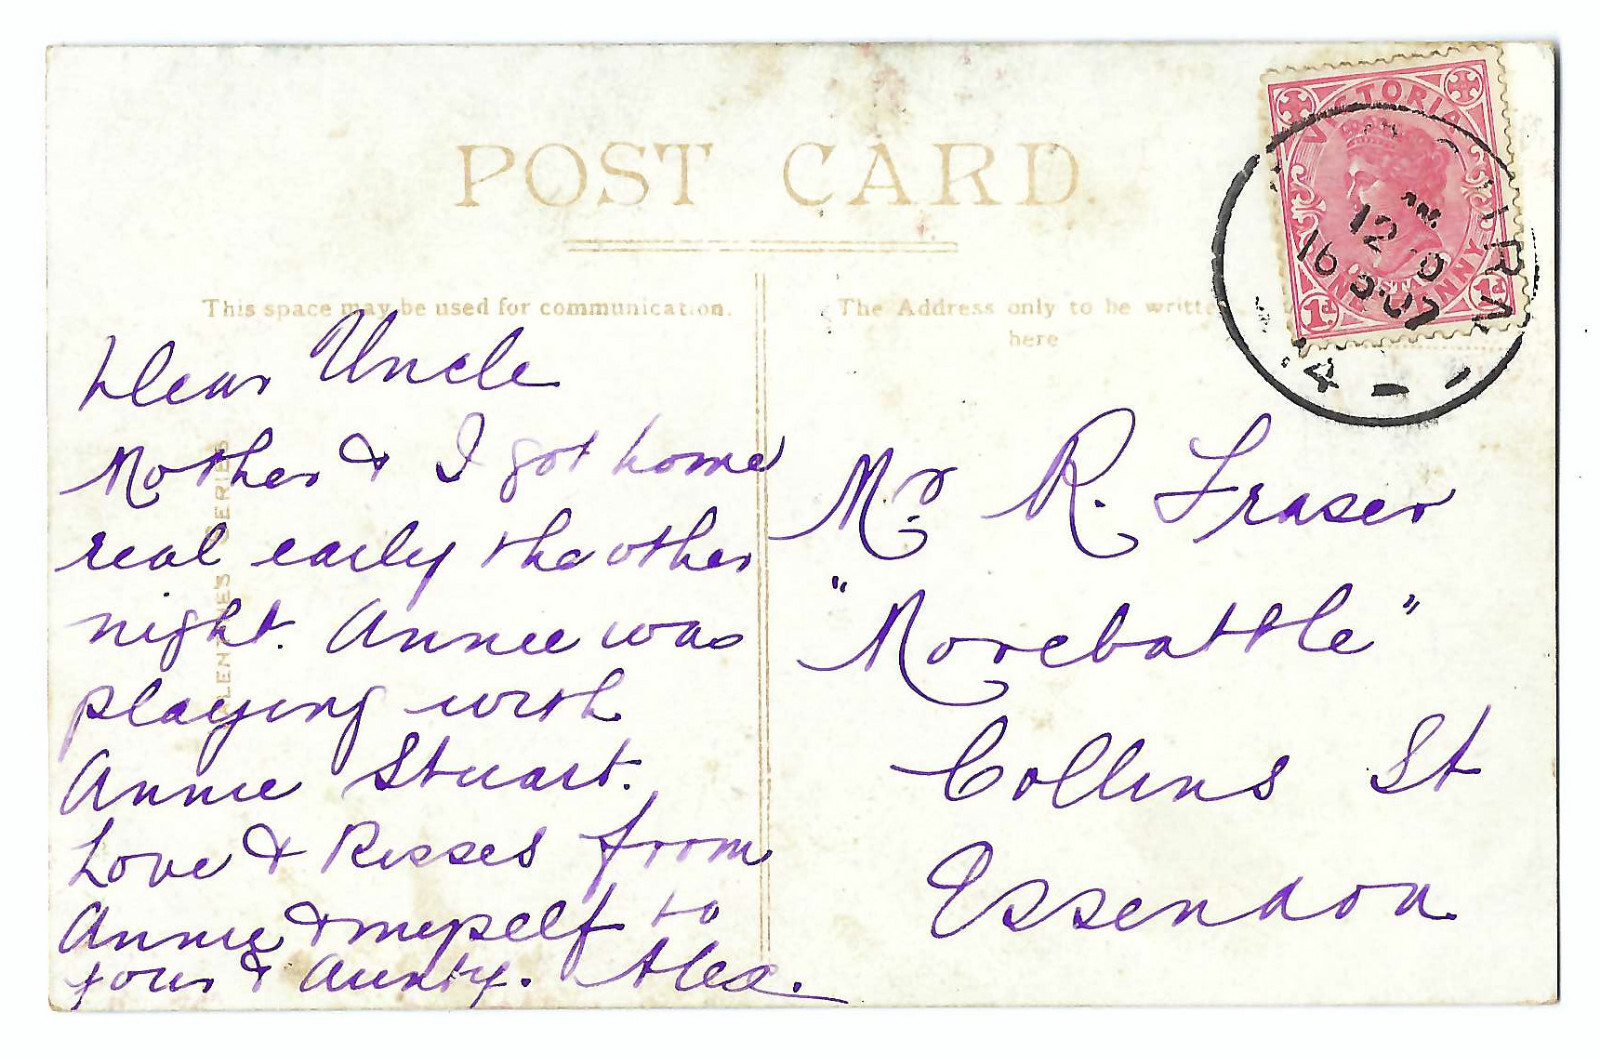 POST CARD.
This space may be used for communication.
The Address only to be written
here
Dear Uncle
Mother & I got home
real early the other
night. Annie was
playing with
Annie Stuart.
Love & Kisses from
Annie & myself to
your & Aunty. Alex.
Mr. R. Fraser
"Morebattle"
Collins St
Essendon
VICTORIA
ONE PENNY
1d 1d
12
16
07
SERIES